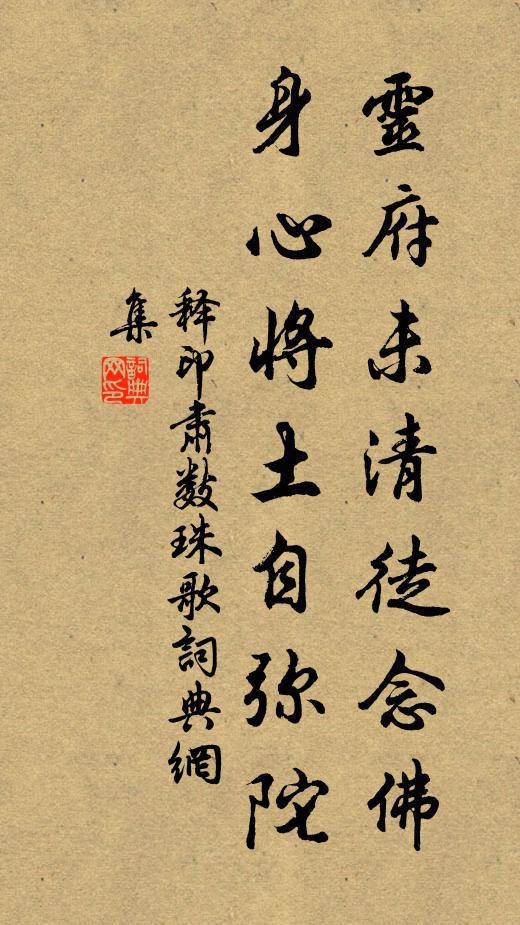 靈府未清徒念佛
身心將土自弥陀
释印肅數珠歌詞典網
集
詞典
网印